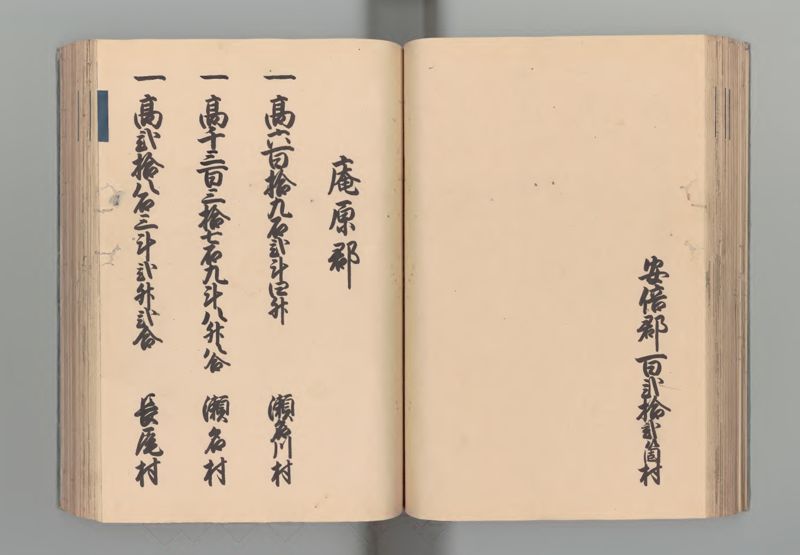 安倍郡百弐拾弐箇村
庵原郡
一高六百拾九石弐斗四升 瀬名川村
一高千三百三拾七石九斗八升八合 瀬名村
一高弐拾八石三斗弐升弐合 長尾村